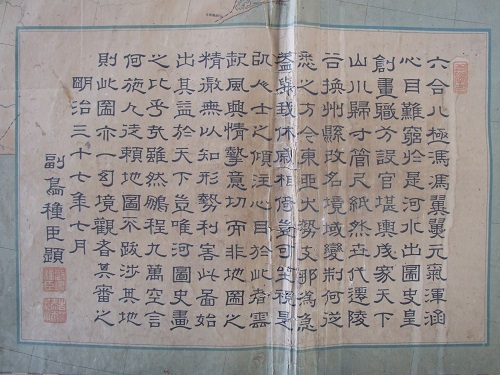 六合八極馮馮翼翼元氣渾涵
心目難窮於是河水出圖史皇
創畫職方設官堪輿成家天下
山川歸寸簡尺紙然世代遷陵
谷換州縣改名境域變制何從
悉之方今東亞大勢為急
盖與我休戚相倚豈可坐視是
人士之傾注心目於此者雲
起風興情摯意切而非地圖之
精無以知形勢利害此啚始
出其益於天下豈唯河圖史畫
之比乎哉雖然鵬程九萬空言
何施徒賴地圖不跋涉其地
則此圖亦一幻境觀者其審之
明治三十七年七月
副島種臣題